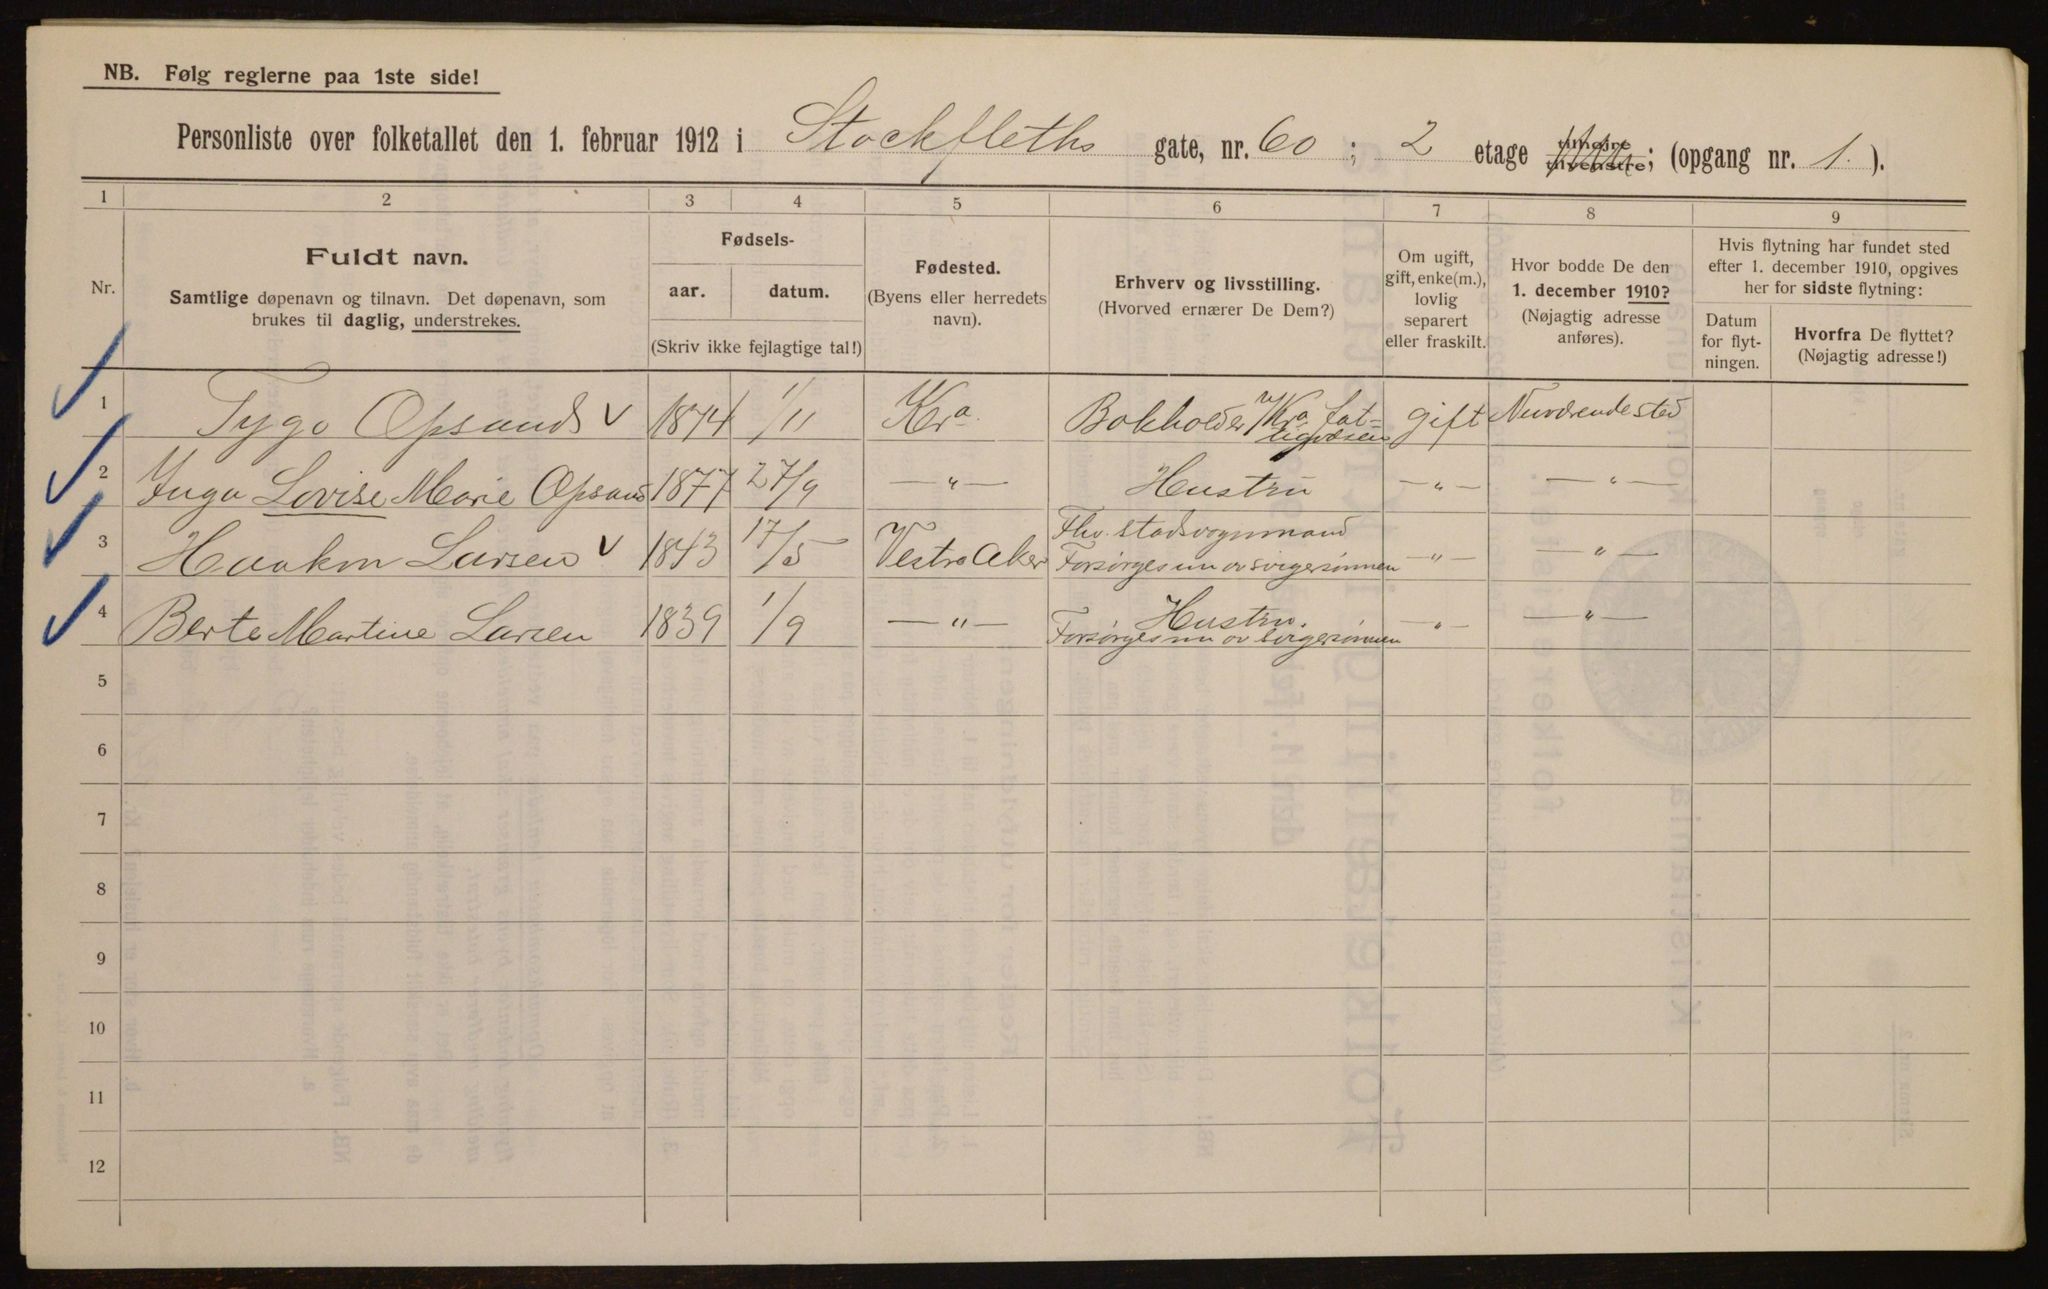 NB. Følg reglerne paa 1ste side!
Personliste over folketallet den 1. februar 1912 i Stockfleths gate, nr. 60 ; 2 etage tilhøire tilvenstre; (opgang nr. 1. ).
1 2 3 4 5 6 7 8 9
Nr.
Fuldt navn.
Samtlige døpenavn og tilnavn. Det døpenavn, som
brukes til daglig, understrekes.
Fødsels-
aar. datum.
(Skriv ikke fejlagtige tal!)
Fødested.
(Byens eller herredets
navn).
Erhverv og livsstilling.
(Hvorved ernærer De Dem?)
Om ugift,
gift, enke(m.),
lovlig
separert
eller fraskilt.
Hvor bodde De den
1. december 1910?
(Nøjagtig adresse
anføres).
Hvis flytning har fundet sted
efter 1. december 1910, opgives
her for sidste flytning:
Datum
for flyt-
ningen.
Hvorfra De flyttet?
(Nøjagtig adresse!)
1 Tygo Opsand v 1874 1/11 Kra. Bokholder v/Kra. fat-
tigvæsen gift Nuværende sted
2 Inga Lovise Marie Opsand 1877 27/9 —"— Hustru —"— —"—
3 Haakon Larsen v 1843 17/5 Vestre Aker Fhv. stadsvognmand
Forsørges nu av svigersønnen —"— —"—
4 Berte Martine Larsen 1839 1/9 —"— Hustru.
Forsørges nu av svigersønnen —"— —"—
5
6
7
8
9
10
11
12